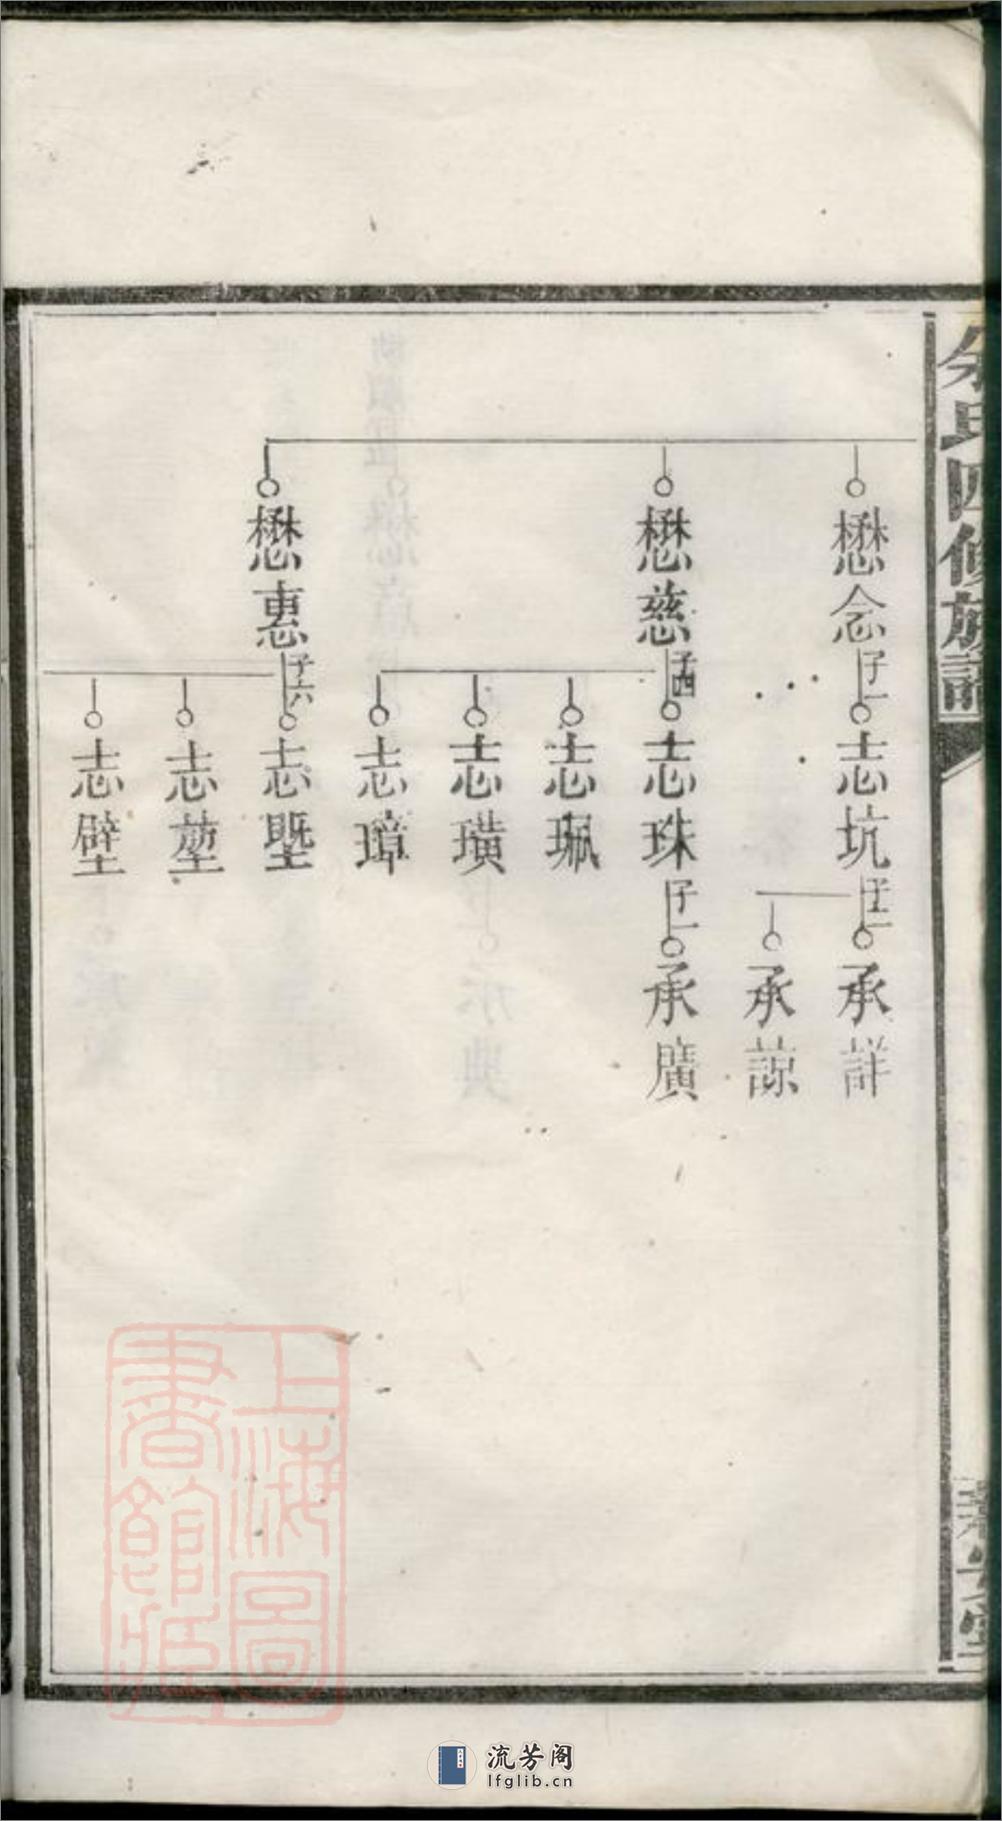 余氏四修族譜
懋念
子一
志坑
子二
承詳
承諒
懋慈
子四
志珠
子一
承廣
志珮
志璜
志璋
懋惠
子六
志塈
志塹
志壁
上海圖書館藏
流芳阁
lfglib.cn